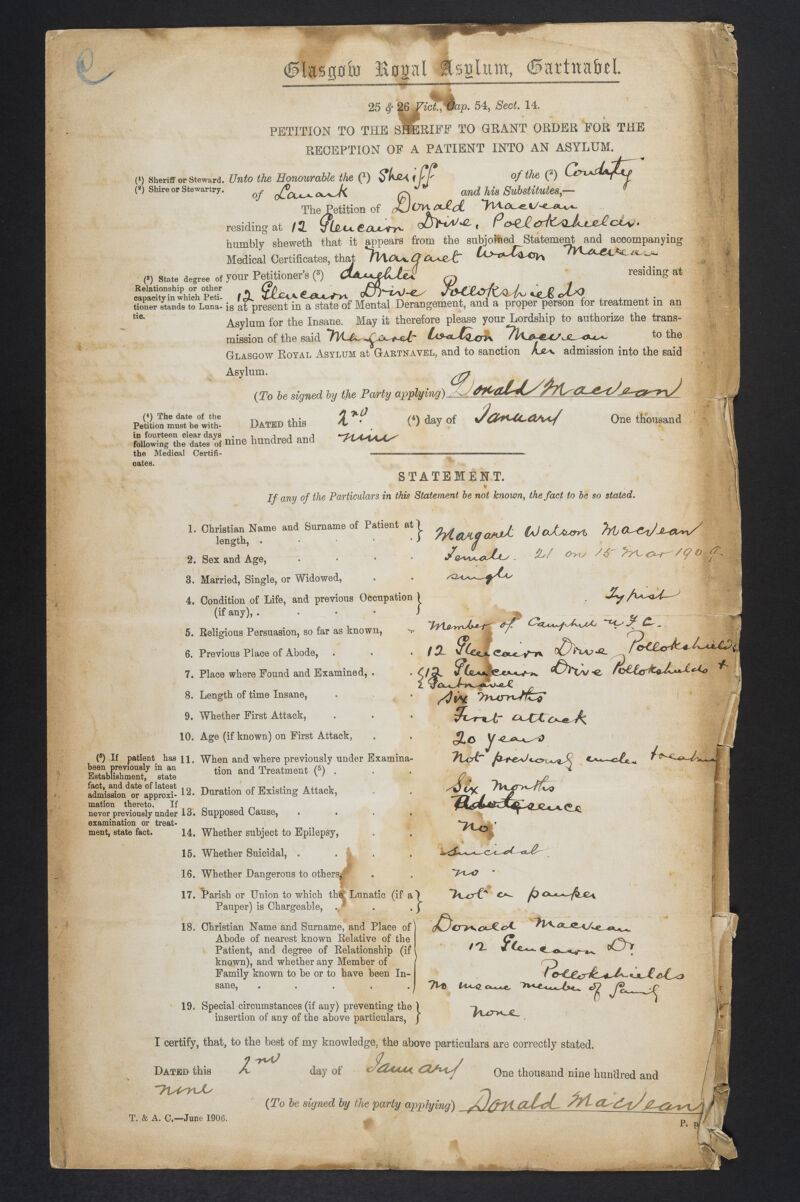 Glasgow Royal Asylum, Gartnabel.
25 & 26 Vict., Cap. 54, Sect. 14.
PETITION TO THE SHERIFF TO GRANT ORDER FOR THE
RECEPTION OF A PATIENT INTO AN ASYLUM.
(1) Sheriff or Steward.
(2) Shire or Stewartry.
Unto the Honourable the (1) Sheriff of the (2) County
of Lanark and his Substitutes,—
The Petition of Donald Macvean
residing at 12 Glencairn Drive, Pollokshields.
humbly sheweth that it appears from the subjoined Statement and accompanying
Medical Certificates, that Margaret Watson Macvean
(3) State degree of
Relationship or other
capacity in which Peti-
tioner stands to Luna-
tic.
your Petitioner's (3) daughter residing at
12 Glencairn Drive Pollokshields
is at present in a state of Mental Derangement, and a proper person for treatment in an
Asylum for the Insane. May it therefore please your Lordship to authorize the trans-
mission of the said Margaret Watson Macvean to the
GLASGOW ROYAL ASYLUM AT GARTNAVEL, and to sanction her admission into the said
Asylum.
(To be signed by the Party applying) Donald MacVean
(4) The date of the
Petition must be with-
in fourteen clear days
following the dates of
the Medical Certifi-
cates.
DATED this 2nd (4) day of January One thousand
nine hundred and nine
STATEMENT.
If any of the Particulars in this Statement be not known, the fact to be so stated.
1. Christian Name and Surname of Patient at
length, . Margaret Watson MacVean
2. Sex and Age, Female. 21 on 15 Mar 1909.
3. Married, Single, or Widowed, single
4. Condition of Life, and previous Occupation
(if any), . Typist
5. Religious Persuasion, so far as known, Member of Camphill U.F.C.
6. Previous Place of Abode, . 12 Glencairn Drive Pollokshields
7. Place where Found and Examined, . 12 Glencairn Drive Pollokshields +
Gartnavel
8. Length of time Insane, Six months
9. Whether First Attack, First attack
10. Age (if known) on First Attack, 20 years
(5) If patient has
been previously in an
Establishment, state
fact, and date of latest
admission or approxi-
mation thereto. If
never previously under
examination or treat-
ment, state fact.
11. When and where previously under Examina-
tion and Treatment (5) . Not previously under
12. Duration of Existing Attack, Six months
13. Supposed Cause, Adolescence
14. Whether subject to Epilepsy, no.
15. Whether Suicidal, . suicidal.
16. Whether Dangerous to others, no.
17. Parish or Union to which the Lunatic (if a
Pauper) is Chargeable, . not a pauper
18. Christian Name and Surname, and Place of
Abode of nearest known Relative of the
Patient, and degree of Relationship (if
known), and whether any Member of
Family known to be or to have been In-
sane, .
Donald Macvean
12 Glencairn Dr.
Pollokshields
No insane member of family
19. Special circumstances (if any) preventing the
insertion of any of the above particulars, none.
I certify, that, to the best of my knowledge, the above particulars are correctly stated.
DATED this 2nd day of January One thousand nine hundred and
nine
(To be signed by the party applying) Donald MacVean
T. & A. C.—June 1906.